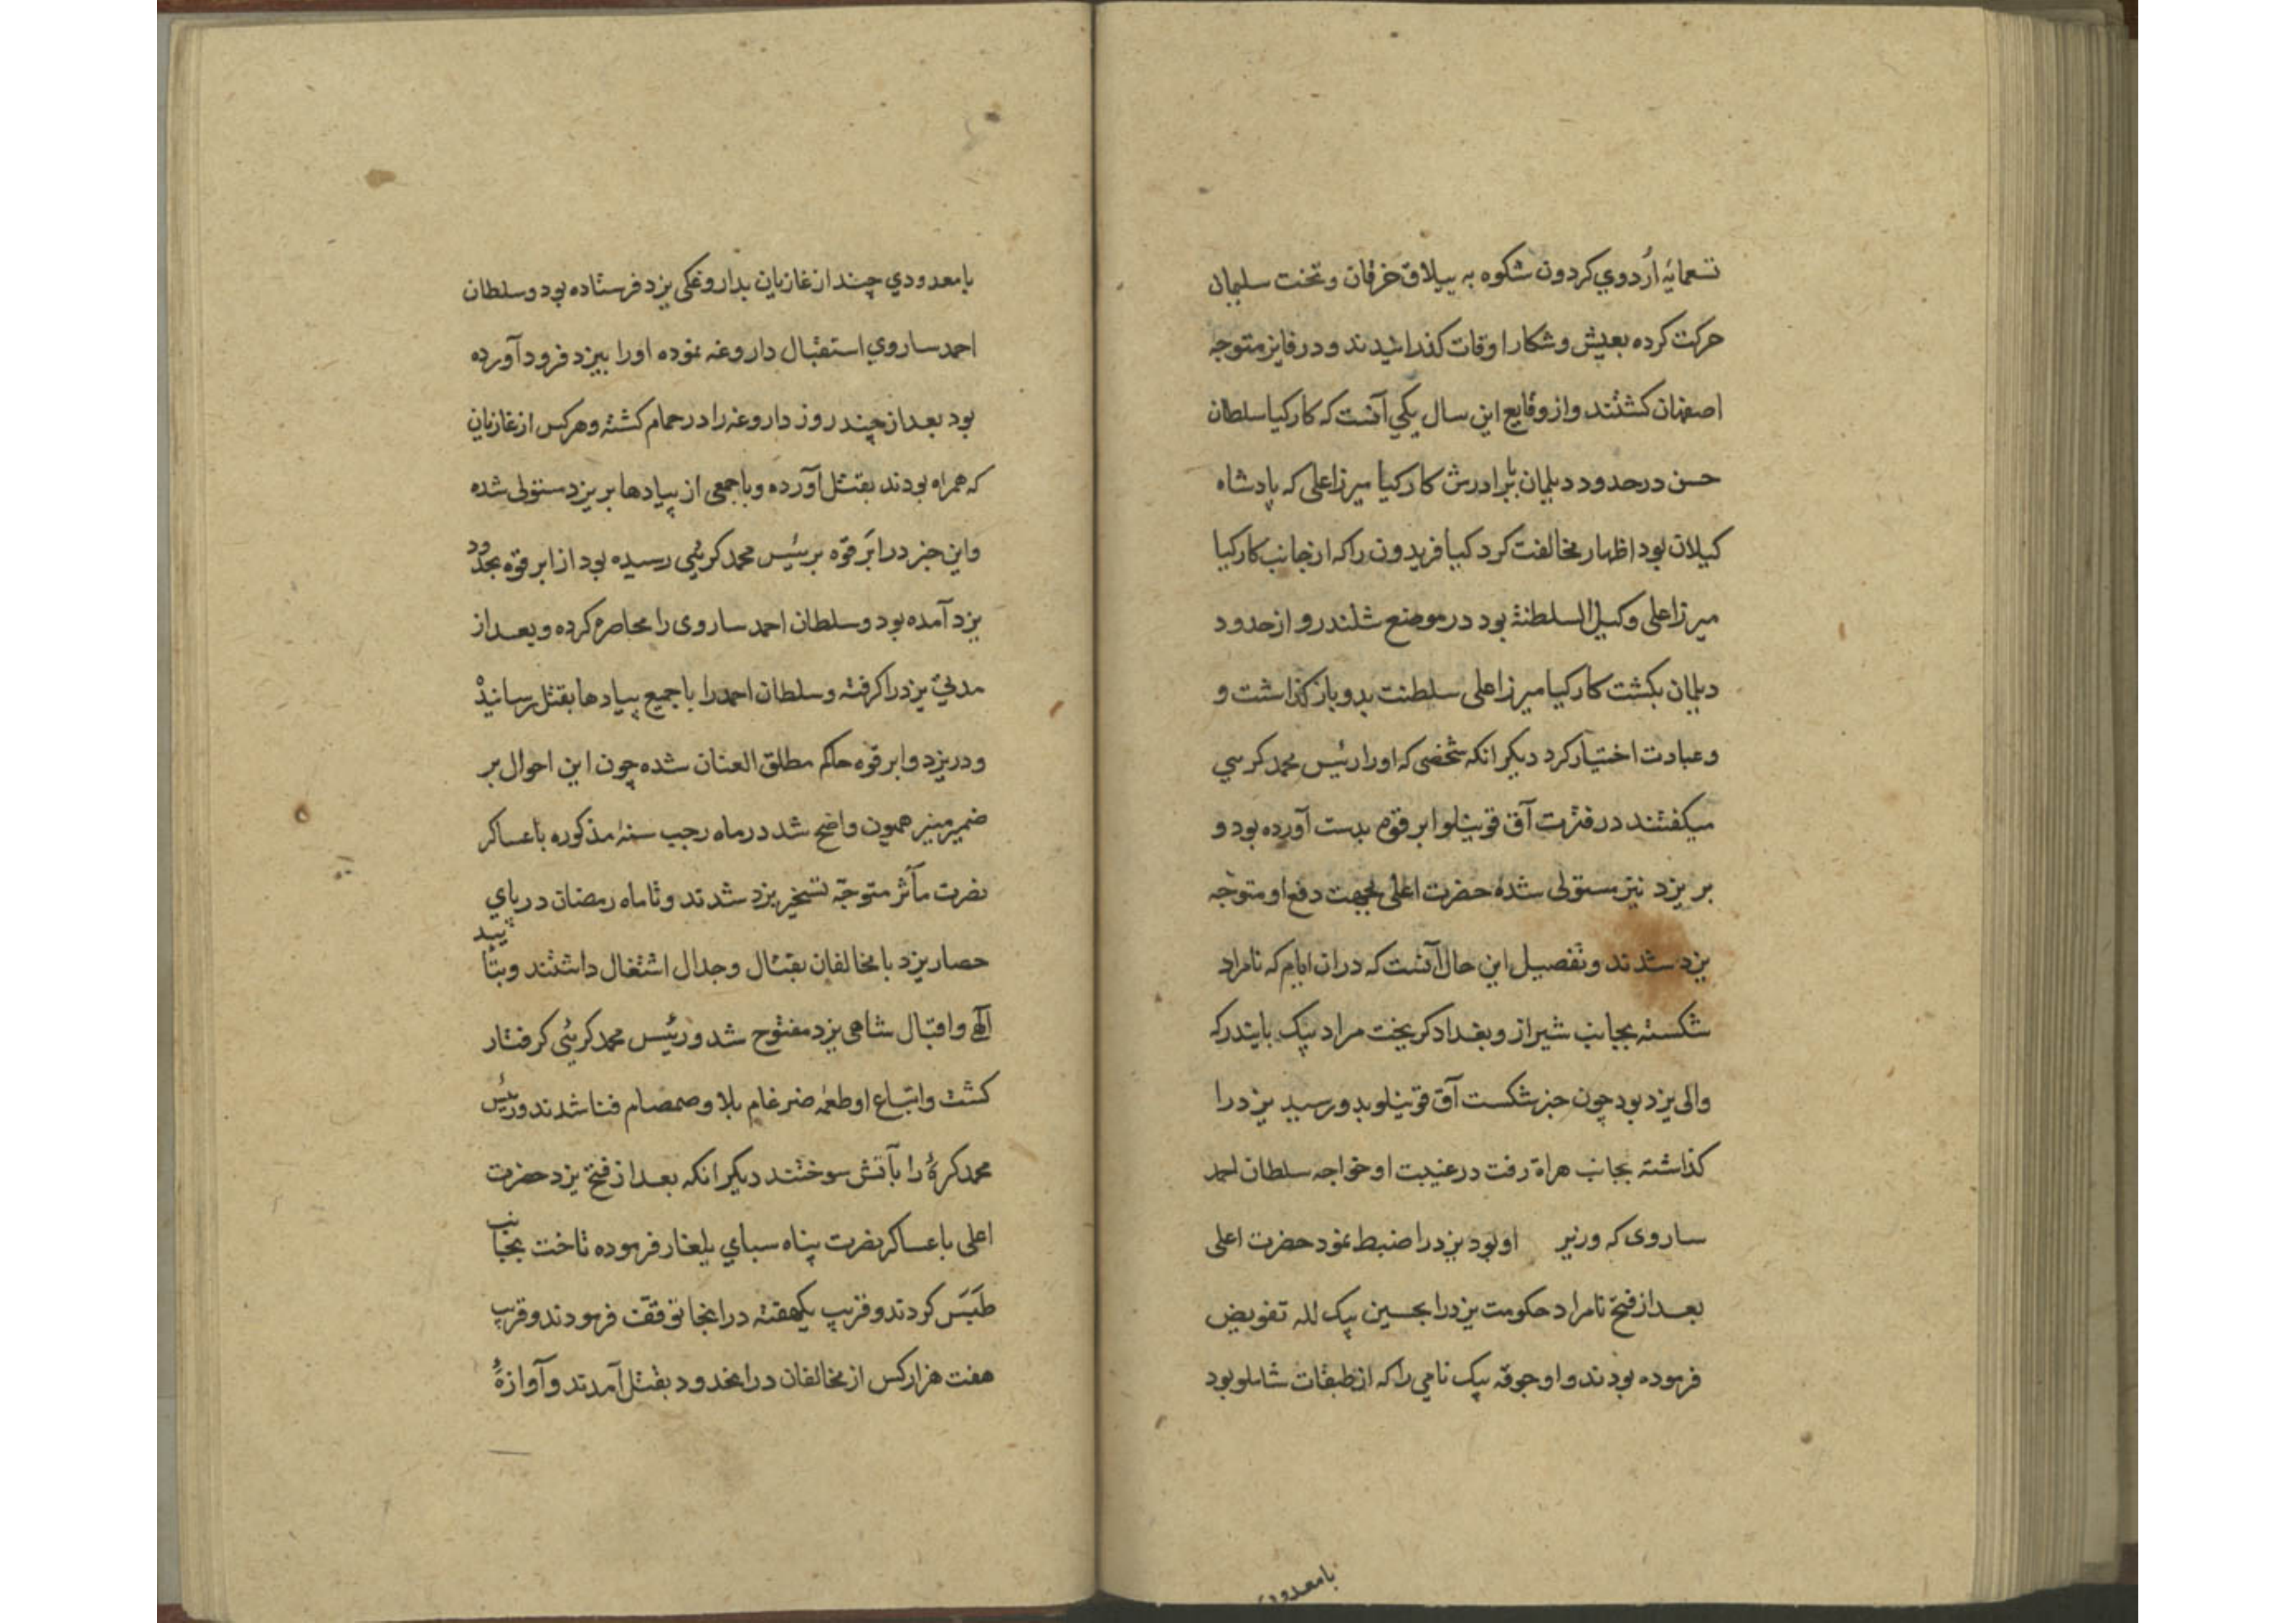 تسعمایه اُردوي کردون شکوه به ییلاق خرقان و تخت سلیمان
حرکت کرده بعیش و شکار اوقات کذرانیدند و در قایز متوجه
اصفهان کشتند و از وقایع این سال یکي آنست که کارکیا سلطان
حسن در حدود دیلمان با برادرش کارکیا میرزا علی که پادشاه
کیلان بود اظهار مخالفت کرد کیا فریدون را که از جانب کارکیا
میرزا علی وکیل السلطنة بود در موضع شلندرو از حدود
دیلمان بکشت کارکیا میرزا علی سلطنت بدو باز کذاشت و
و عبادت اختیار کرد دیکر انکه شخصی که او را رئیس محمد کرسي
میکفتند در فترت آق قوینلو ابرقوه بدست آورده بود و
بر یزد نیز مستولی شده حضرت اعلی بجهت دفع او متوجه
یزد شدند و تفصیل این حال آنست که در ان ایام که نامراد
شکسته بجانب شیراز و بغداد کریخت مراد بیک بایندر که
والی یزد بود چون خبر شکست آق قوینلو بدو رسید یزد را
کذاشته بجانب هراة رفت در غیبت او خواجه سلطان احمد
ساروی که وزیر او بود یزد را ضبط نمود حضرت اعلی
بعد از فتح نامراد حکومت یزد را بحسین بیک لله تفویض
فرموده بودند و او جوقه بیک نامي را که از طبقات شاملو بود
بامعدودي
بامعدودي چند از غازیان بداروغکی یزد فرستاده بود و سلطان
احمد ساروي استقبال داروغه نموده او را بیزد فرود آورده
بود بعد از چند روز داروغه را در حمام کشته و هر کس از غازیان
که همراه بودند بقتل آورده و با جمعی از پیادها بر یزد مستولی شده
و این خبر در ابَرقوّه برئیس محمد کرئیی رسیده بود از ابرقوه بحدود
یزد آمده بود و سلطان احمد ساروی را محاصره کرده و بعد از
مدتیٰ یزد را کرفته و سلطان احمد را با جمیع پیادها بقتل رسانیذ
و در یزد و ابرقوه حاکم مطلق العنان شده چون این احوال بر
ضمیر منیر همیون واضح شد در ماه رجب سنهٔ مذکوره با عساکر
نصرت مآثر متوجّه تسخیر یزد شدند و تا ماه رمضان در پاي
حصار یزد با مخالفان بقتال و جدال اشتغال داشتند و بتائید
آلهي و اقبال شاهی یزد مفتوح شد و رئیس محمد کرئی کرفتار
کشت و اتباع او طعمهٔ ضرغام بلا و صمصام فنا شدند و رئیس
محمد کرهٔ را بآتش سوختند دیکر انکه بعد از فتح یزد حضرت
اعلی با عساکر نصرت پناه سباي یلغار فرموده تاخت بجانب
طَبَس کردند و قریب یکهفته در انجا توقّف فرمودند و قریب
هفت هزار کس از مخالفان در انحدود بقتل آمدند و آوازهٔ